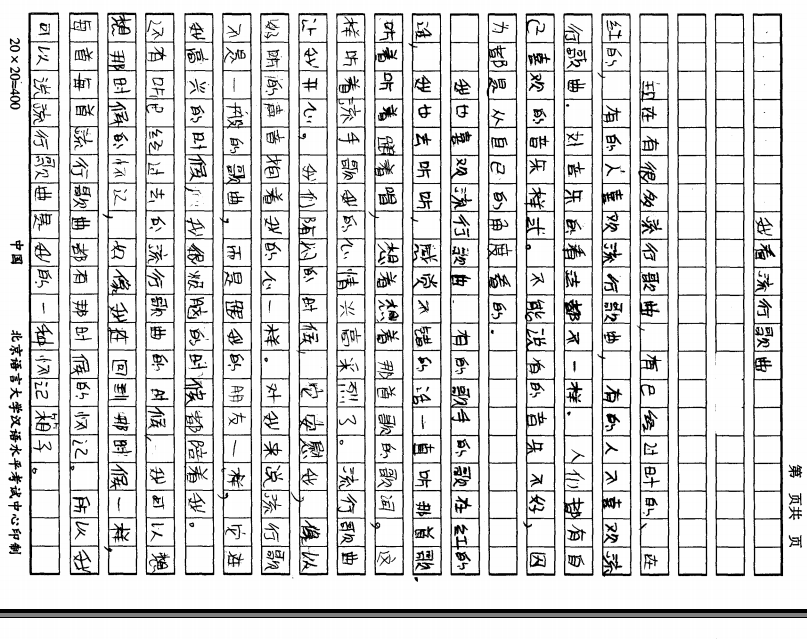 第 页共 页
我看流行歌曲
现在有很多流行歌曲，有已经过时的、在
红的，有的人喜欢流行歌曲，有的人不喜欢流
行歌曲．对音乐的看法都不一样．人们都有自
己喜欢的音乐样式。不能说有的音乐不好，因
为都是从自己的角度看的．
我也喜欢流行歌曲．有的歌手的歌在红的
话，我也去听听，感觉不错的话一直听那首歌．
听着听着跟着唱，想着想着那首歌的歌词。这
样听着流手歌我的心情兴高采烈了。流行歌曲
让我开心。我们陷闷的时候，它安慰我，像以
好听的声音抱着我的心一样。对我来说流行歌
不是一般的歌曲，而是跟我的朋友一样，它在
我高兴的时候，我很烦恼的时候都陪着我。
还有听已经过去的流行歌曲的时候，我可以想
想那时候的忆记，好像我在回到那时候一样，
每首每首流行歌曲都有那时候的忆记。所以我
可以说流行歌曲是我的一种忆记箱子。
20×20=400 中国 北京语言大学汉语水平考试中心印制